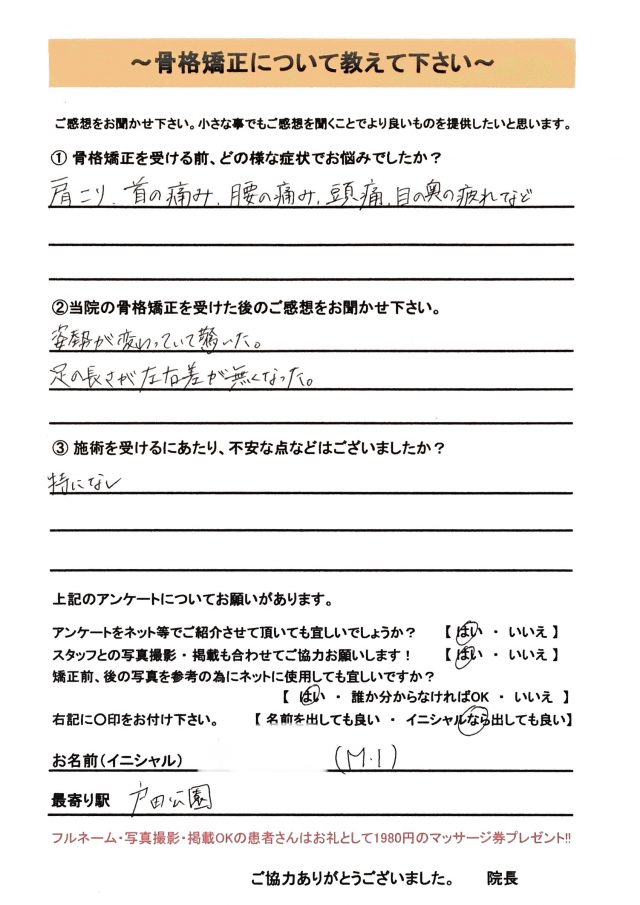 ～骨格矯正について教えて下さい～
ご感想をお聞かせ下さい。小さな事でもご感想を聞くことでより良いものを提供したいと思います。
① 骨格矯正を受ける前、どの様な症状でお悩みでしたか？
肩こり、首の痛み、腰の痛み、頭痛、目の奥の疲れなど
②当院の骨格矯正を受けた後のご感想をお聞かせ下さい。
姿勢が変わっていて驚いた。
足の長さが左右差が無くなった。
③ 施術を受けるにあたり、不安な点などはございましたか？
特になし
上記のアンケートについてお願いがあります。
アンケートをネット等でご紹介させて頂いても宜しいでしょうか？ 【 はい ・ いいえ 】
スタッフとの写真撮影・掲載も合わせてご協力お願いします！ 【 はい ・ いいえ 】
矯正前、後の写真を参考の為にネットに使用しても宜しいですか？
【 はい ・ 誰か分からなければOK ・ いいえ 】
右記に〇印をお付け下さい。 【 名前を出しても良い ・ イニシャルなら出しても良い】
お名前（イニシャル） (M.I)
最寄り駅 戸田公園
フルネーム・写真撮影・掲載OKの患者さんはお礼として1980円のマッサージ券プレゼント!!
ご協力ありがとうございました。 院長